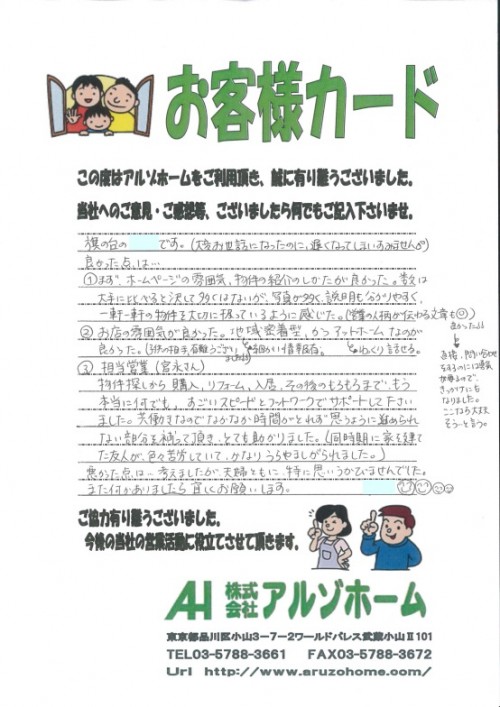 お客様カード
この度はアルゾホームをご利用頂き、誠に有り難うございました。
当社へのご意見・ご感想等、ございましたら何でもご記入下さいませ。
旗の台の です。(大変お世話になったのに、遅くなってしまいすみません
良かった点は…
①まず、ホームページの雰囲気、物件の紹介のしかたが良かった。数は
大手に比べると決して多くはないが、写真が多く、説明も分かりやすく、
一軒一軒の物件を大切に扱っているように感じた。(営業の人柄が伝わる文章も
良かった
直接、問い合わせ
をするのには勇気
が要るので、
きっかけに
なりました。
ここなら大丈夫
そう…と思う。
②お店の雰囲気が良かった。地域密着型、かつアットホームなのが
良かった。
③担当営業(宮永さん)
物件探しから購入、リフォーム、入居、その後のもろもろまで、もう
本当に何でも、すごいスピードとフットワークでサポートして下さい
ました。共働きなのでなかなか時間がとれず思うように進められ
ない部分を補って頂き、とても助かりました。(同時期に家を建て
た友人が、色々苦労していて、かなりうらやましがられました。)
悪かった点は…考えましたが、夫婦ともに、特に思いうかびませんでした。
また何かありましたら宜しくお願いします。
ご協力有り難うございました。
今後の当社の営業活動に役立てさせて頂きます。
AH 株式会社 アルゾホーム
東京都品川区小山3-7-2ワールドパレス武蔵小山Ⅱ101
TEL03-5788-3661 FAX03-5788-3672
Url http://www.aruzohome.com/